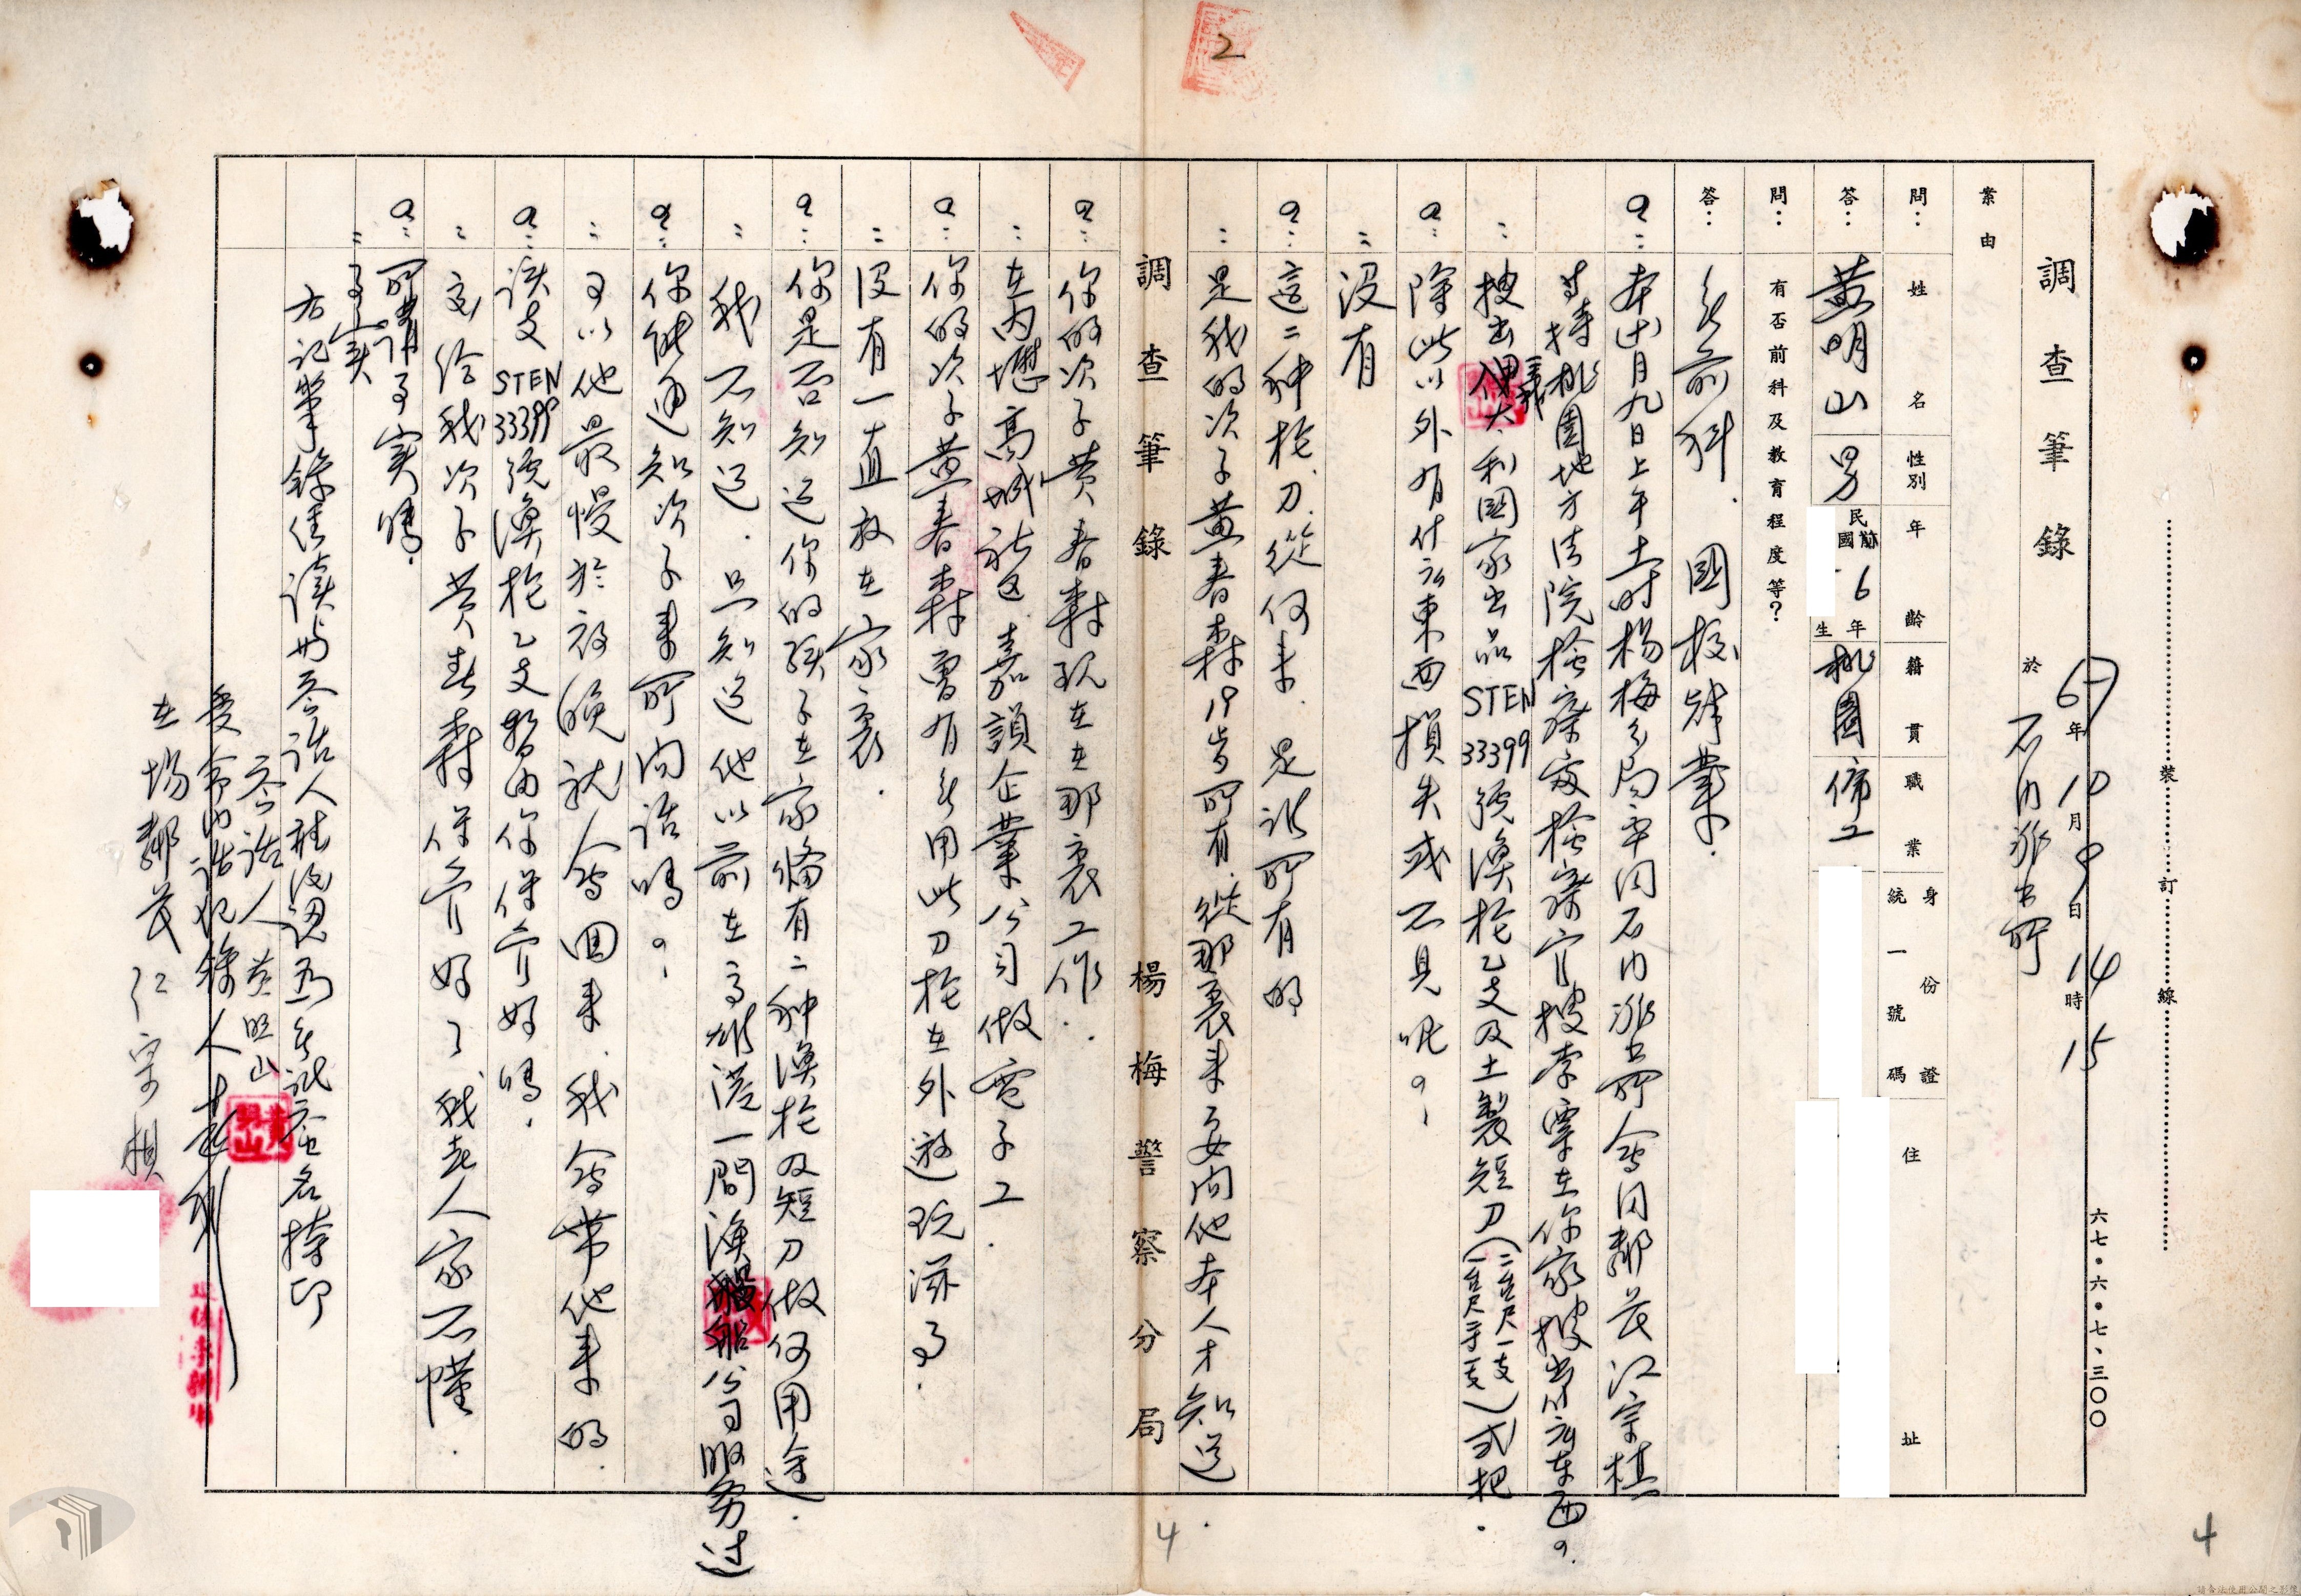 2
調查筆錄
67年10月9日14時15
於石門派出所
六七・六・七、三〇〇
裝訂線
案由
問：姓名 性別 年齡 籍貫 職業 身份證統一號碼 住址
答：黃明山 男 民國前6年生 桃園 佈工
問：有否前科及教育程度等？
答：無前科．國校肄業．
本(十)月九日上午十時楊梅分局率同石門派出所會同鄰長江宗棋
等持桃園地方法院檢察處檢察官搜索票在你家搜出什么東西？
：搜出義大利國家出品STEN33399號渙槍乙支及土製短刀（二台尺一支一台尺半一支）弍把．
：除此以外有什么東西損失或不見呢？
：沒有
：這二种槍．刀．從何來．是誰所有的
：是我的次子黃春森19歲所有，從那裏來要问他本人才知道．
調查筆錄 楊梅警察分局
：你的次子黃春森现在在那裏工作．
：在內壢高城社区嘉頡企業公司做電子工．
：你的次子黃春森曾有無用此刀槍在外遊玩滋事．
：没有一直放在家裏．
：你是否知道你的孩子在家俻有二种渙槍及短刀做何用途．
：我不知道．只知道他以前在高雄港一間渙船公司服务过
：你能通知次子来所问話嗎？
：可以他最慢於夜晚就会回来．我会带他来的．
：該支STEN33399號渙槍乙支暂由你保管好嗎．
：交给我次子黄春森保管好了我老人家不懂．
：所講事实嗎．
：事实
右記筆錄経讀與答话人确认认為無訛签名捺印
答话人 黃明山
在場鄰長 江宗棋
4
4